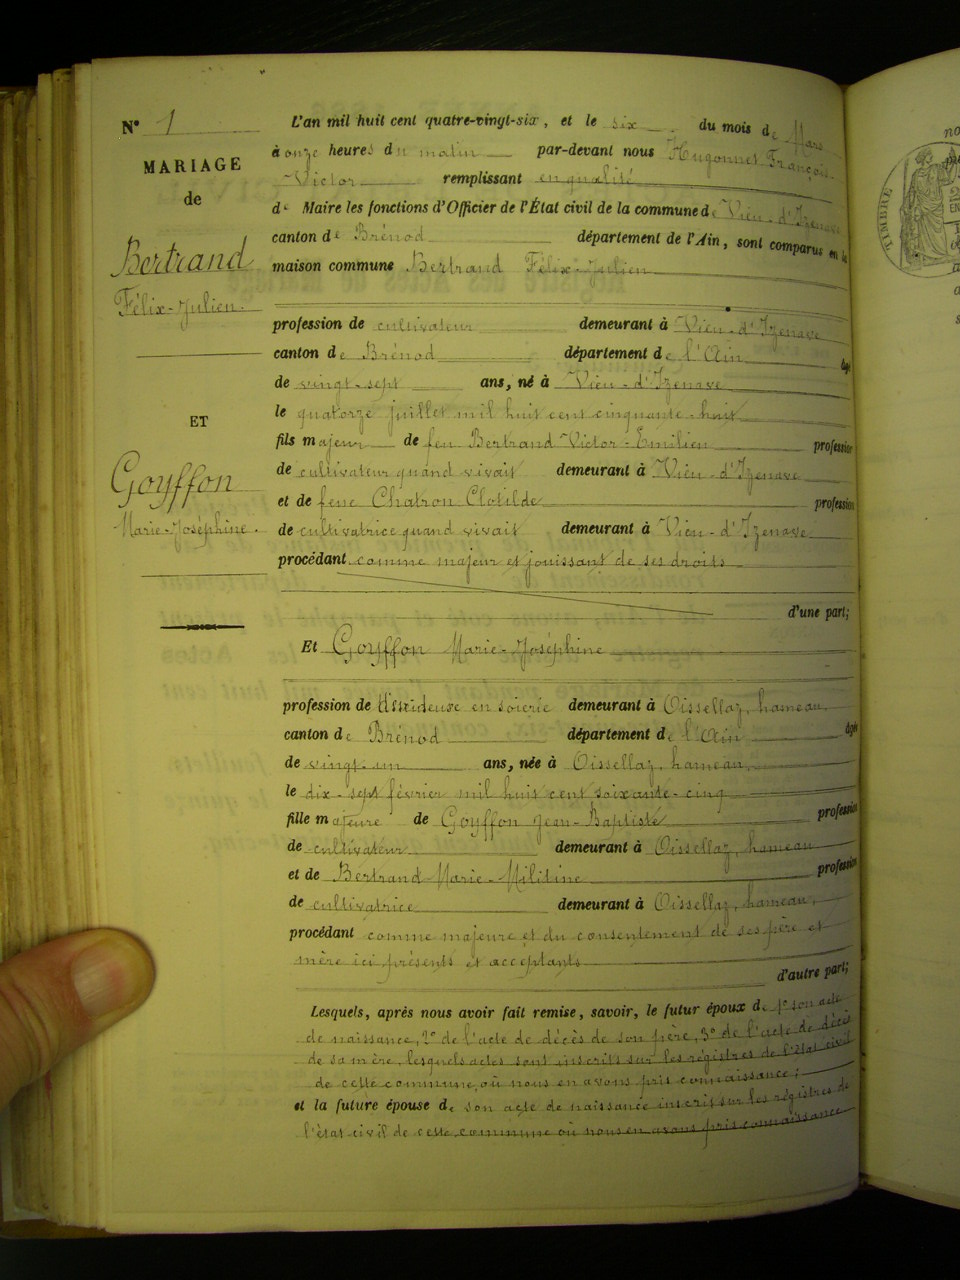 N° 1
MARIAGE
de
Bertrand
Félix-Julien
ET
Goyffon
Marie-Joséphine
L'an mil huit cent quatre-vingt-six, et le six du mois de Mars
à onze heures du matin par-devant nous Hugonnet François-
Victor remplissant en qualité
de Maire les fonctions d'Officier de l'État civil de la commune de Vieu-d'Izenave
canton de Brénod département de l'Ain, sont comparus en la
maison commune Bertrand Félix-Julien
profession de cultivateur demeurant à Vieu-d'Izenave
canton de Brénod département de l'Ain âgé
de vingt-sept ans, né à Vieu-d'Izenave
le quatorze juillet mil huit cent cinquante-huit
fils majeur de feu Bertrand Victor-Emilien profession
de cultivateur quand vivait demeurant à Vieu-d'Izenave
et de feue Chatron Clotilde profession
de cultivatrice quand vivait demeurant à Vieu-d'Izenave
procédant comme majeur et jouissant de ses droits
d'une part;
Et Goyffon Marie-Joséphine
profession de en soierie demeurant à Oissellaz, hameau,
canton de Brénod département de l'Ain âgée
de vingt-un ans, née à Oissellaz, hameau,
le dix-sept février mil huit cent soixante-cinq
fille majeure de Goyffon Jean-Baptiste profession
de cultivateur demeurant à Oissellaz, hameau
et de Bertrand Marie-Militine profession
de cultivatrice demeurant à Oissellaz, hameau,
procédant comme majeure et du consentement de ses père et
mère ici présents et acceptants
d'autre part;
Lesquels, après nous avoir fait remise, savoir, le futur époux de 1° son acte
de naissance, 2° de l'acte de décès de son père, 3° de l'acte de décès
de sa mère, lesquels actes sont inscrits sur les régistres de l'état civil
de cette commune, où nous en avons pris connaissance;
et la future épouse de son acte de naissance inscrit sur les régistres de
l'état civil de cette commune où nous en avons pris connaissance
TIMBRE